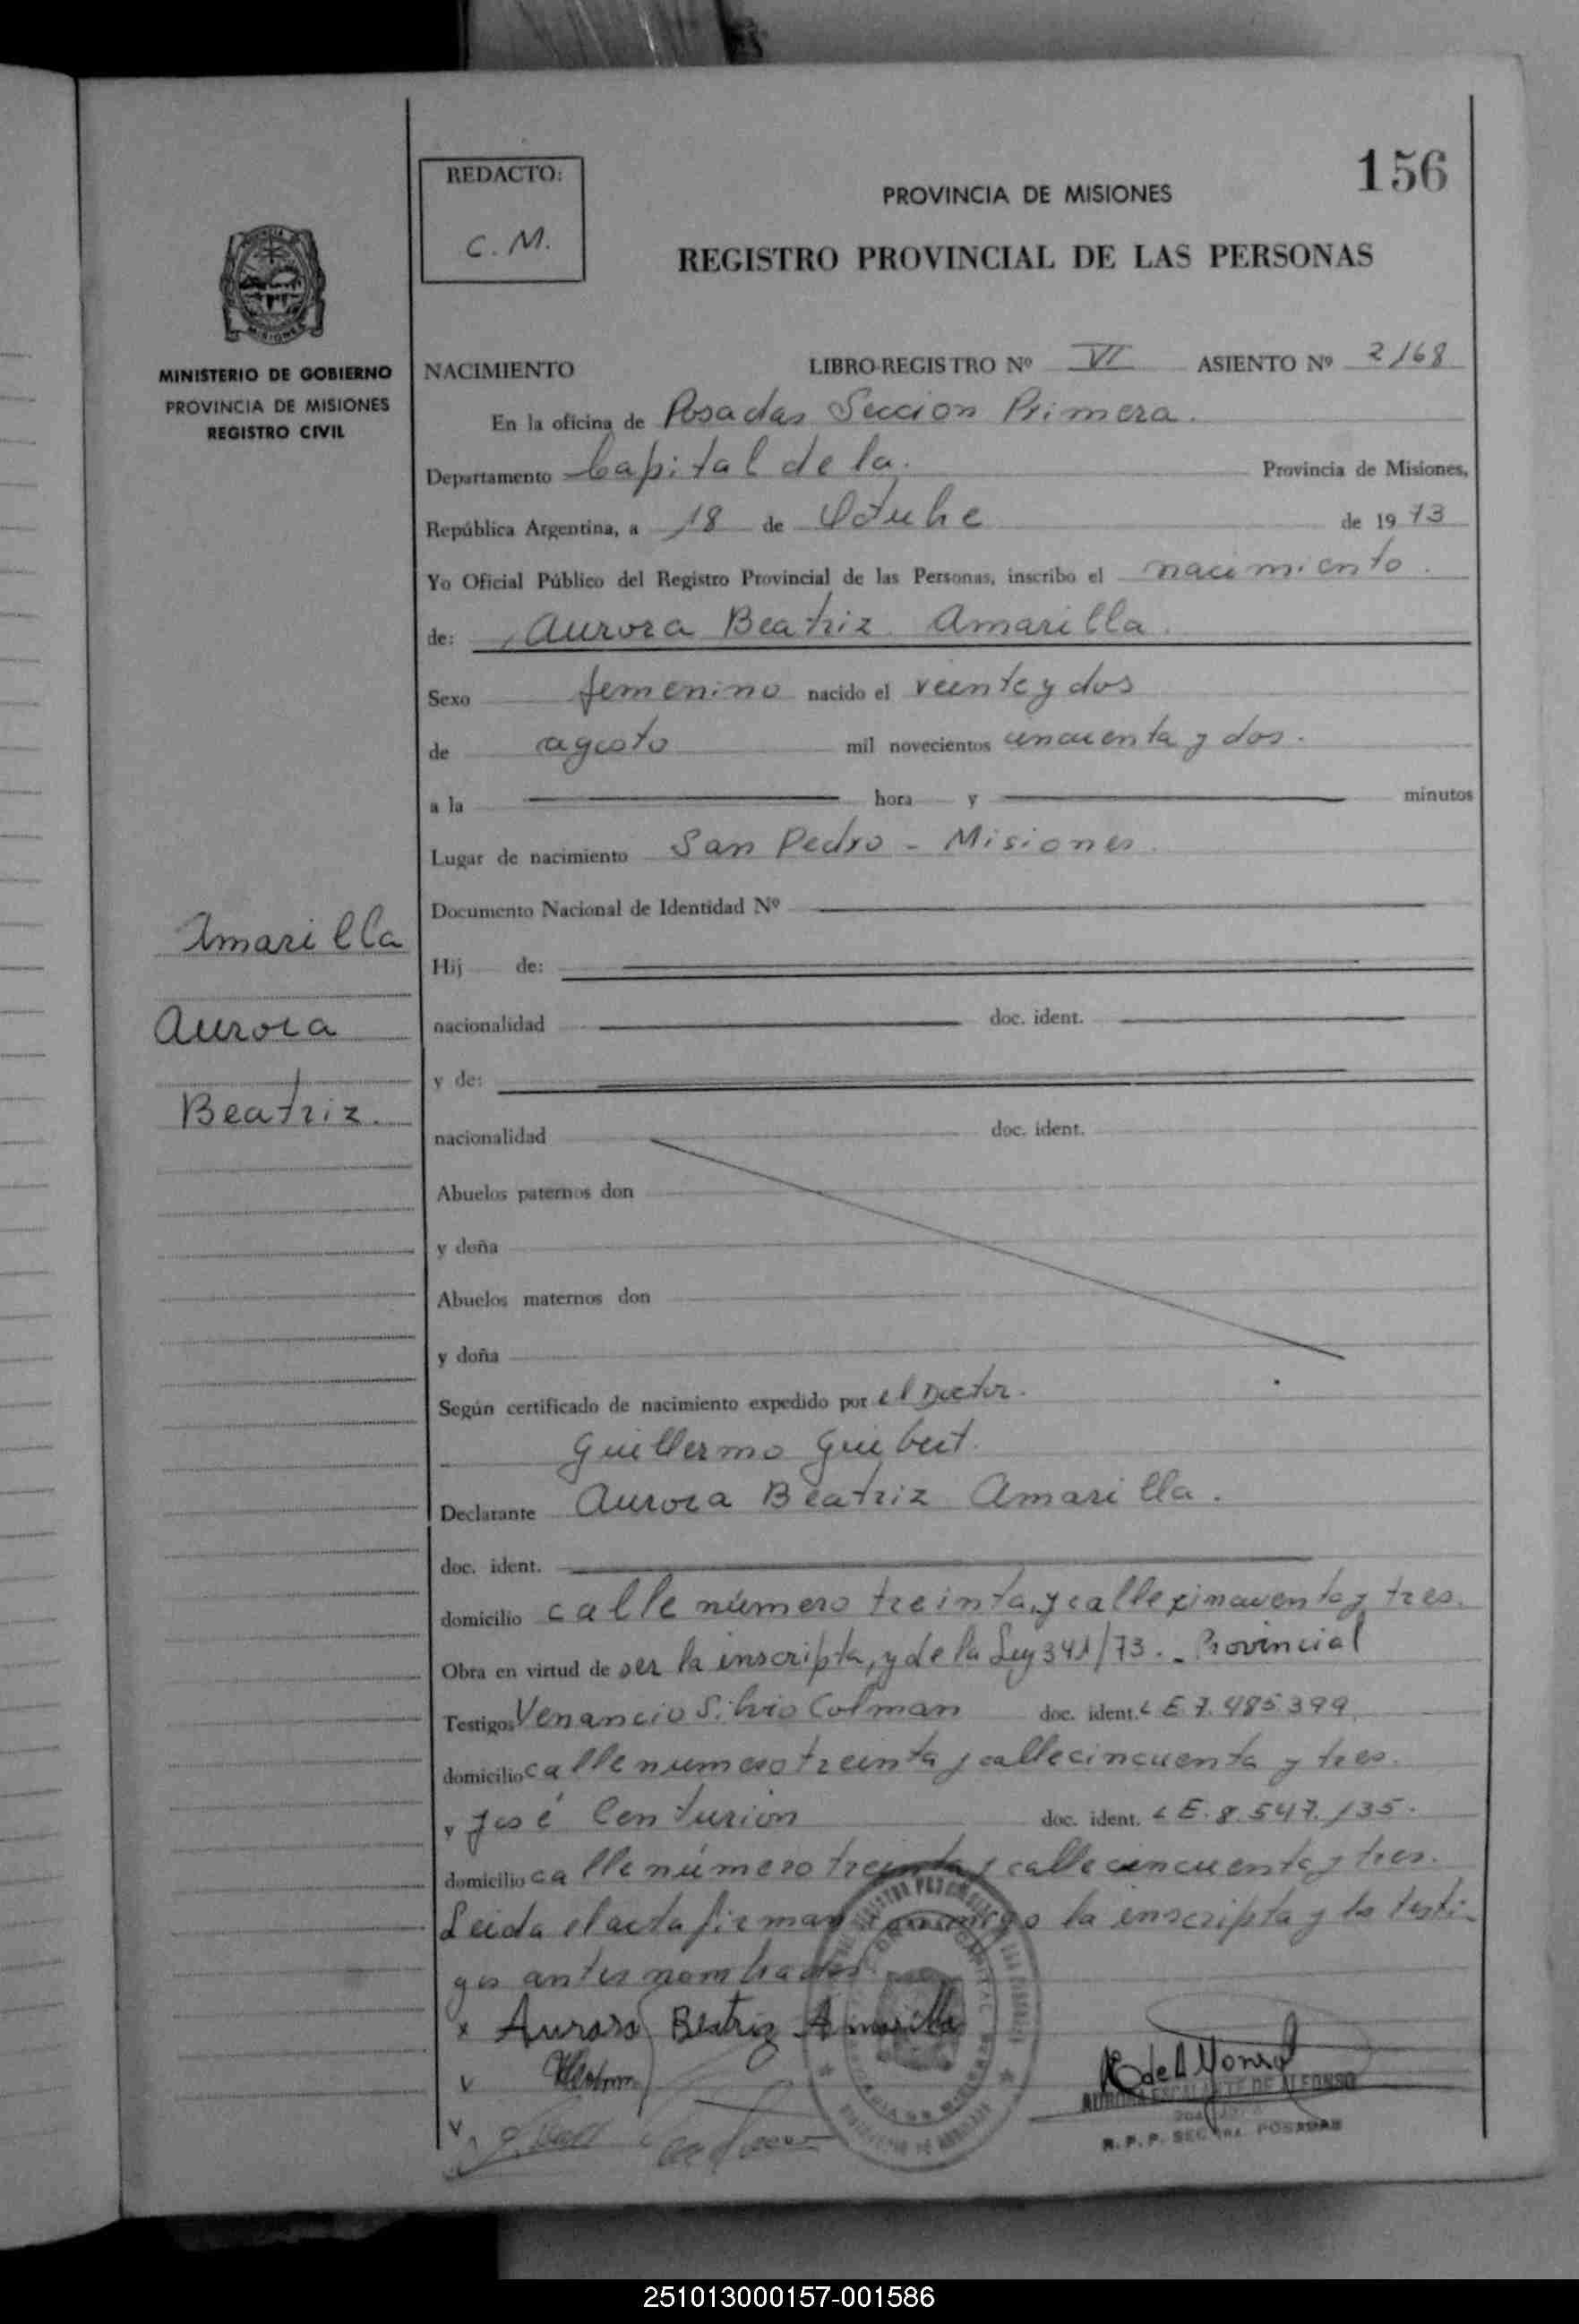 156
REDACTO:
C. M.
PROVINCIA DE MISIONES
REGISTRO PROVINCIAL DE LAS PERSONAS
MINISTERIO DE GOBIERNO
PROVINCIA DE MISIONES
REGISTRO CIVIL
NACIMIENTO LIBRO-REGISTRO Nº VI ASIENTO Nº 2168
En la oficina de Posadas Seccion Primera.
Departamento Capital de la. Provincia de Misiones,
República Argentina, a 18 de Octubre de 1973
Yo Oficial Público del Registro Provincial de las Personas, inscribo el nacimiento.
de: Aurora Beatriz Amarilla.
Sexo femenino nacido el veinte y dos
de agosto mil novecientos cincuenta y dos.
a la hora y minutos
Lugar de nacimiento San Pedro - Misiones.
Documento Nacional de Identidad Nº
Amarilla
Aurora
Beatriz.
Hij de:
nacionalidad doc. ident.
y de:
nacionalidad doc. ident.
Abuelos paternos don
y doña
Abuelos maternos don
y doña
Según certificado de nacimiento expedido por el Doctor.
Guillermo Guibert.
Declarante Aurora Beatriz Amarilla.
doc. ident.
domicilio calle número treinta, y calle cincuenta y tres.
Obra en virtud de ser la inscripta, y de la Ley 341/73.- Provincial
Testigos Venancio Silvio Colman doc. ident. L E 7.485.399.
domicilio calle numero treinta y calle cincuenta y tres.
y José Centurion doc. ident. L E. 8.547.135.
domicilio calle número treinta y calle cincuenta y tres.
Leida el acta firman conmigo la inscripta y los testi-
gos antes nombrados.
x Aurora Beatriz Amarilla
AURORA ESCALANTE DE ALFONSO
R. P. P. SEC. 1ra. POSADAS
251013000157-001586